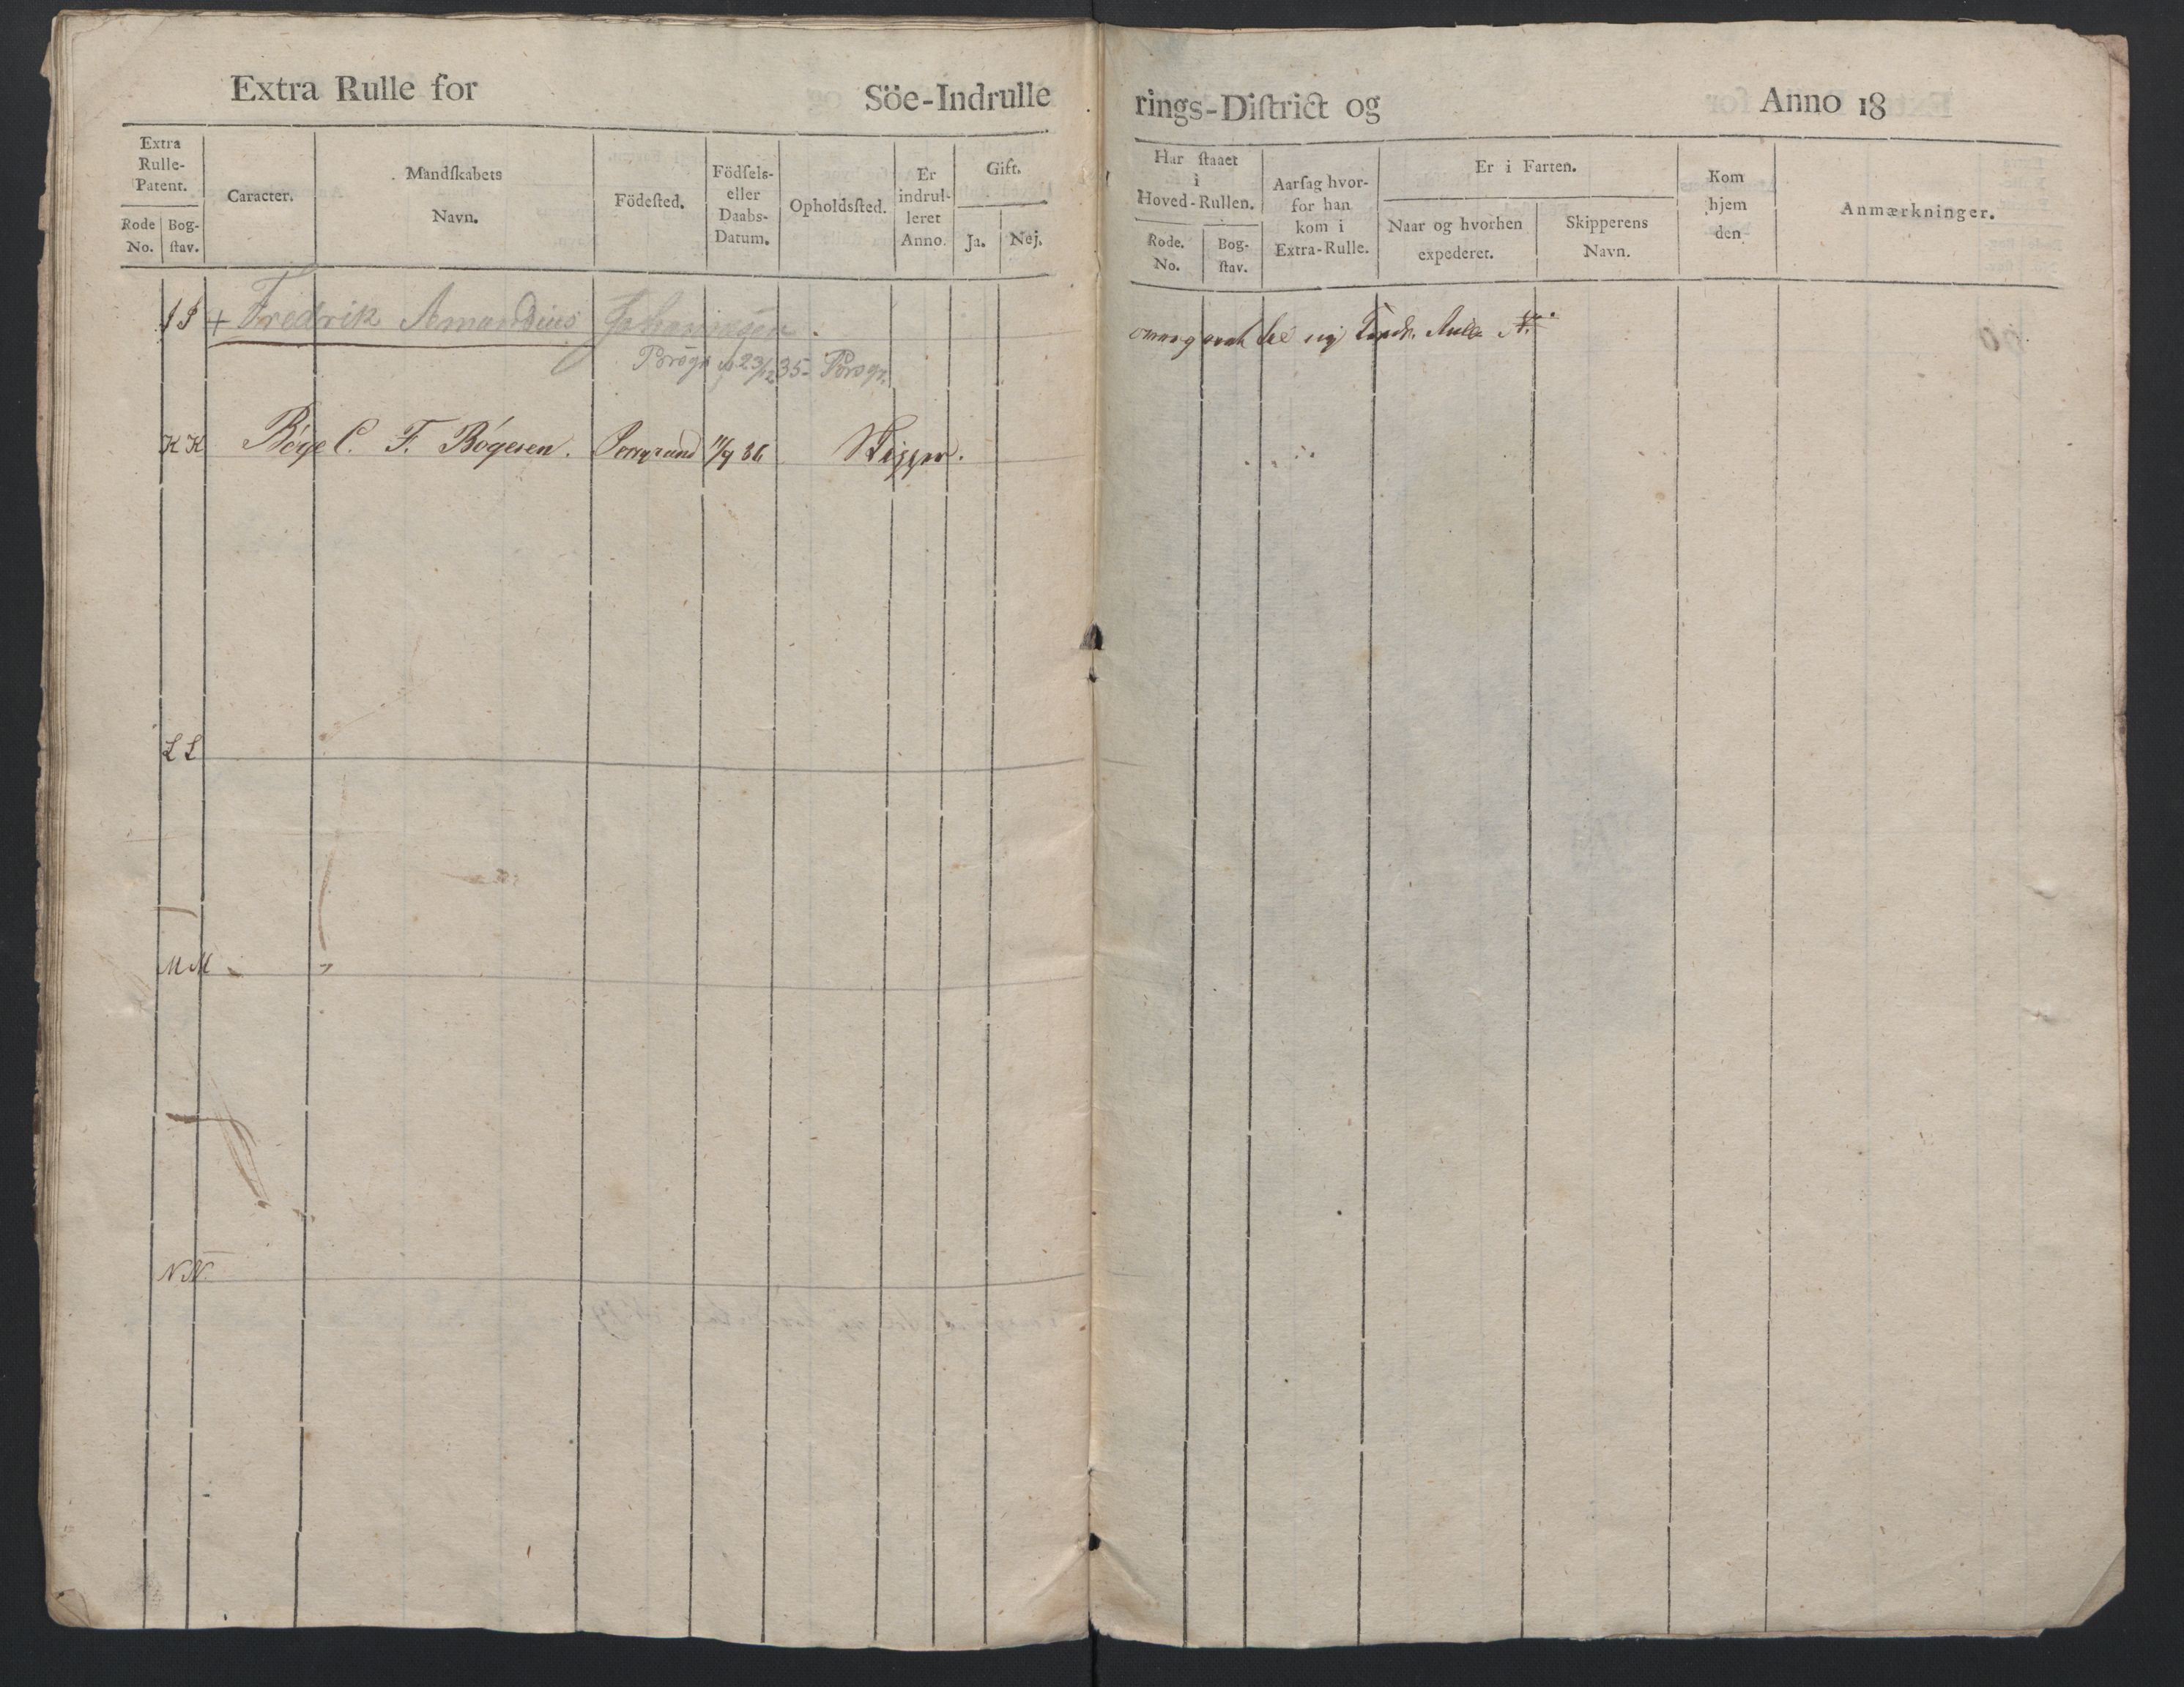 Extra Rulle for Söe-Indrulle
rings-Diſtrict og Anno 18
Extra Rulle-Patent.
Rode No.
Bog-ſtav.
Caracter.
Mandſkabets Navn.
Födeſted.
Födſels- eller Daabs-Datum.
Opholdsſted.
Er indrul-leret Anno.
Gift.
Ja.
Nej.
Har ſtaaet i Hoved-Rullen.
Rode. No.
Bog-ſtav.
Aarſag hvor-for han kom i Extra-Rulle.
Er i Farten.
Naar og hvorhen expederet.
Skipperens Navn.
Kom hjem den
Anmærkninger.
+ Fredrik Amandius Johannesen.
Porsgr 23/12 35 - Porsgr.
K K Börge C. F. Bögesen. Porsgrund 11/9 36 Skipper.
L L
M M
N N